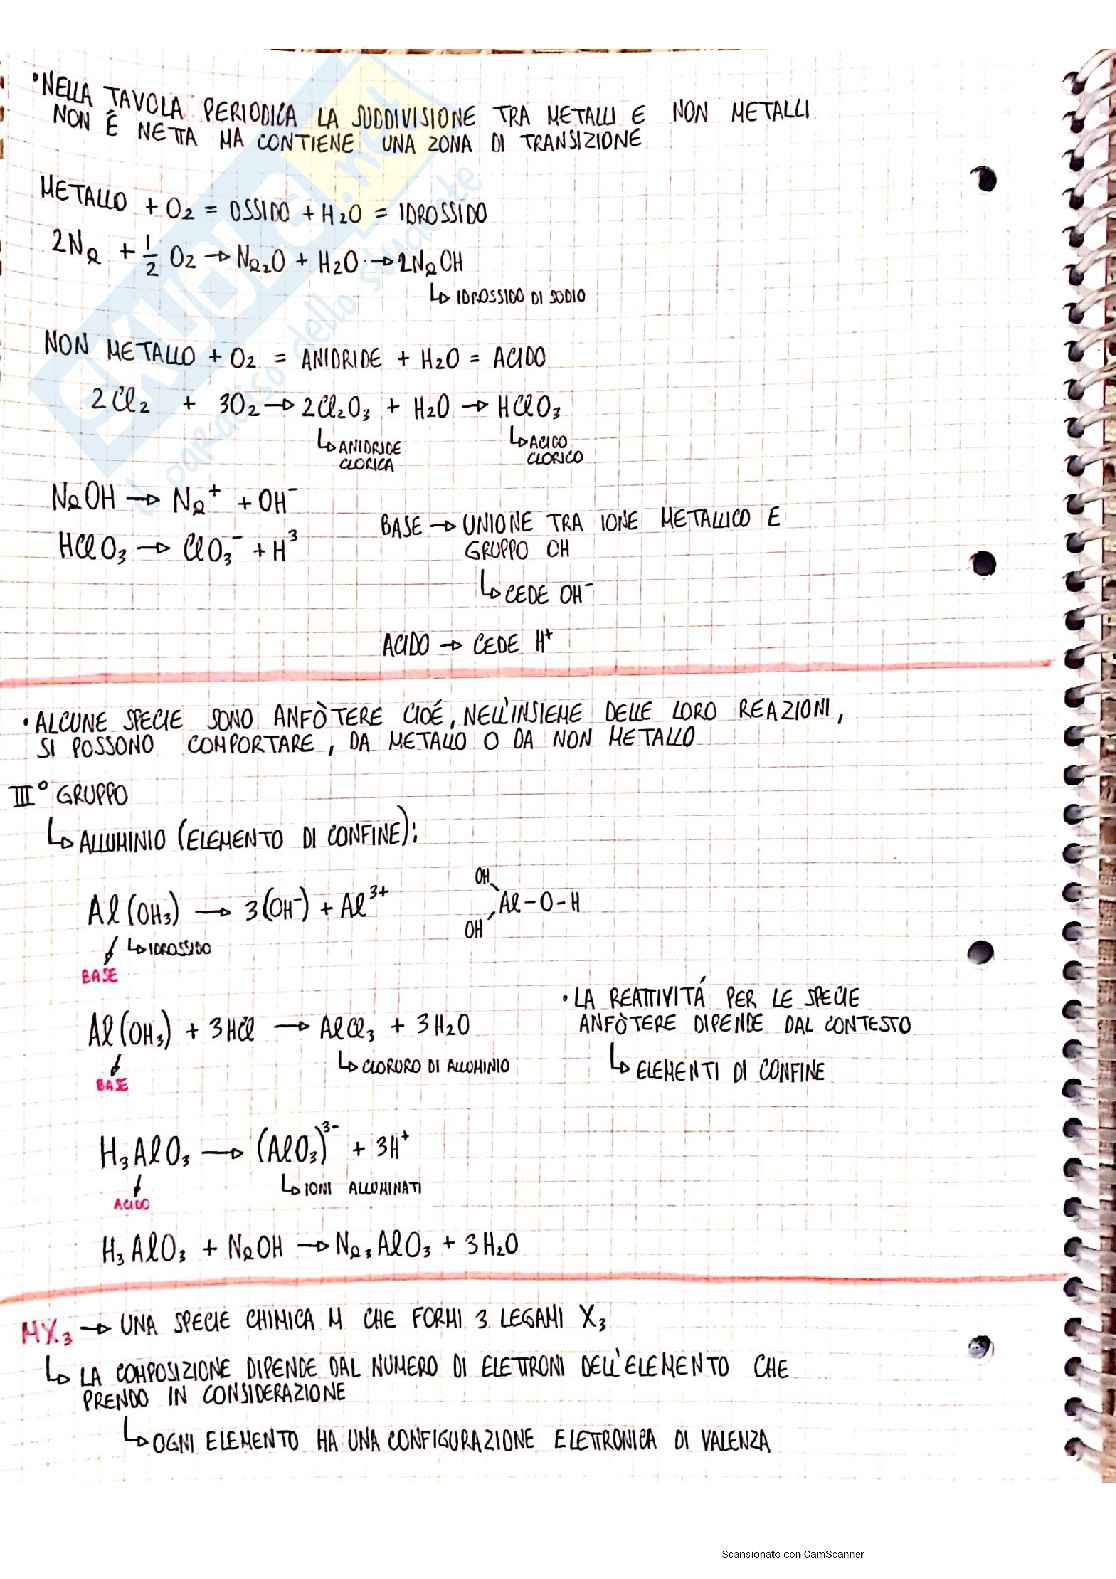 •NELLA TAVOLA PERIODICA LA SUDDIVISIONE TRA METALLI E NON METALLI
NON È NETTA MA CONTIENE UNA ZONA DI TRANSIZIONE
METALLO + O₂ = OSSIDO + H₂O = IDROSSIDO
2Na + 1/2 O₂ → Na₂O + H₂O → 2NaOH
↳ IDROSSIDO DI SODIO
NON METALLO + O₂ = ANIDRIDE + H₂O = ACIDO
2Cl₂ + 3O₂ → 2Cl₂O₃ + H₂O → HClO₃
↳ ANIDRIDE CLORICA
↳ ACIDO CLORICO
NaOH → Na⁺ + OH⁻
HClO₃ → ClO₃⁻ + H³
BASE → UNIONE TRA IONE METALLICO E
GRUPPO OH
↳ CEDE OH⁻
ACIDO → CEDE H⁺
• ALCUNE SPECIE SONO ANFÒTERE CIOÉ, NELL'INSIEME DELLE LORO REAZIONI,
SI POSSONO COMPORTARE, DA METALLO O DA NON METALLO
III° GRUPPO
↳ ALLUMINIO (ELEMENTO DI CONFINE):
Al(OH₃) → 3(OH⁻) + Al³⁺
↳ IDROSSIDO
BASE
OH
Al-O-H
OH
Al(OH₃) + 3HCl → AlCl₃ + 3H₂O
↳ CLORURO DI ALLUMINIO
BASE
• LA REATTIVITÁ PER LE SPECIE
ANFÒTERE DIPENDE DAL CONTESTO
↳ ELEMENTI DI CONFINE
H₃AlO₃ → (AlO₃)³⁻ + 3H⁺
↳ IONI ALLUMINATI
ACIDO
H₃AlO₃ + NaOH → Na₃AlO₃ + 3H₂O
MX₃ → UNA SPECIE CHIMICA M CHE FORMI 3 LEGAMI X₃
↳ LA COMPOSIZIONE DIPENDE DAL NUMERO DI ELETTRONI DELL'ELEMENTO CHE
PRENDO IN CONSIDERAZIONE
↳ OGNI ELEMENTO HA UNA CONFIGURAZIONE ELETTRONICA DI VALENZA
SKUOLA.net
paradiso dello studente
Scansionato con CamScanner